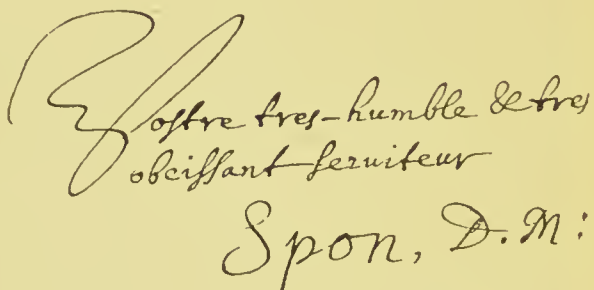 Vostre tres-humble & tres
obeissant seruiteur
Spon, D.M: